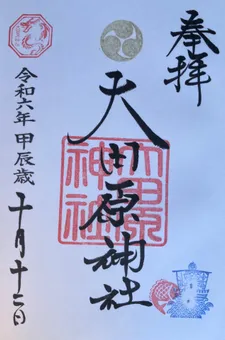 奉拝
天田原神社
令和六年甲辰歳十月十二日